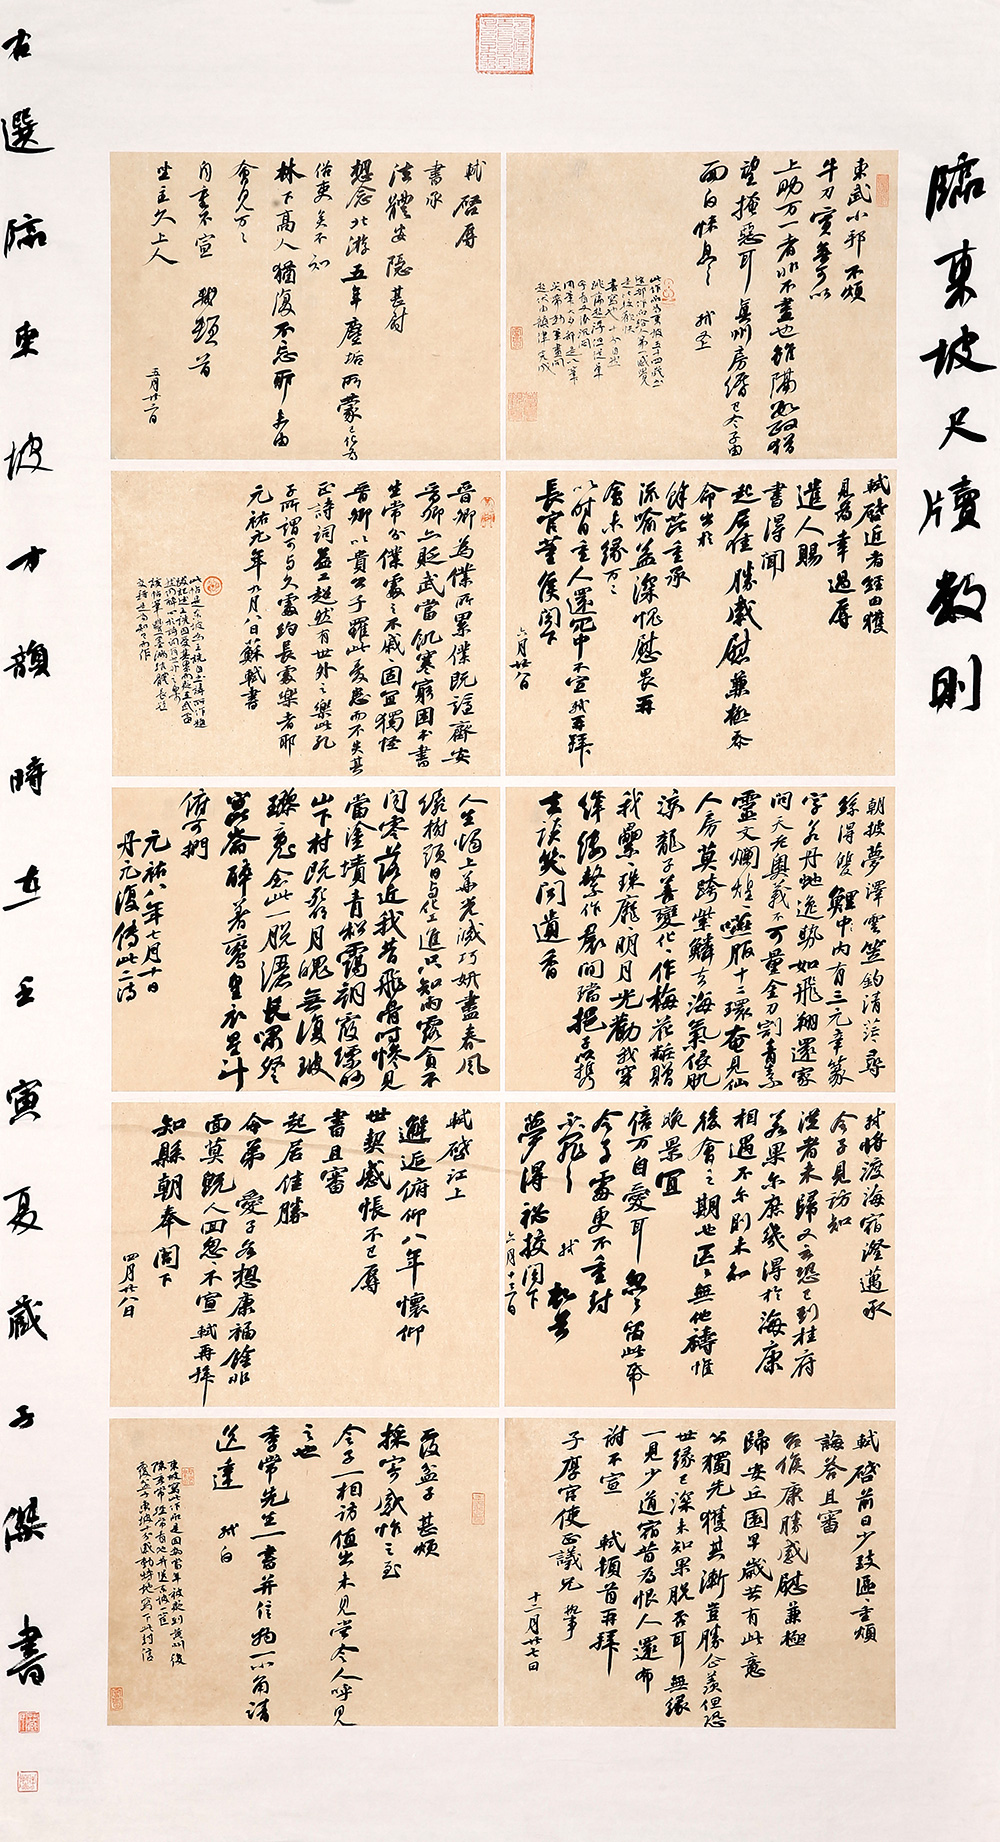 臨東坡尺牘數則
東武小邦不煩
牛刀實無可以
上助万一者非不盡也雖隔數政猶
望掩惡耳真州房緡已令子由
面白悚息 軾又上
軾啓辱
書承
法體安隱甚慰
想念北游五年塵垢所蒙已化為
俗吏矣不知
林下高人猶復不忘耶未由
會見万万
自重不宣 軾頓首
坐主久上人
五月廿二日
軾啓近者經由獲
見為幸過辱
遣人賜
書得聞
起居佳勝感慰兼極忝
命出於
餘芘重承
流喻益深愧畏再
會未緣万万
以時自重人還冗中不宣軾再拜
長官董侯閣下
六月廿八日
晉卿為僕所累僕既謫齊安
晉卿亦貶武當飢寒窮困本書
生常分僕處之不戚戚固宜獨怪
晉卿以貴公子罹此憂患而不失其
正詩詞益工超然有世外之樂此孔
子所謂可与久處約長處樂者耶
元祐元年九月八日蘇軾書
朝披夢澤雲笠釣清茫尋
絲得雙鯉中內有三元章篆
字若丹虵逸勢如飛翔還家
問天老奥義不可量金刀割青素
靈文爛煌煌嚥服十二環奄見仙
人房莫跨紫鱗去海氣侵肌
涼龍子善變化化作梅花粧贈
我纍纍珠靡靡明月光勸我穿
絳縷繫作裙間璫挹子以攜
去談笑聞遺香
人生燭上華光滅巧妍盡春風
繞樹頭日与化工進只知雨露貪不
聞零落近我昔飛骨時慘見
當塗墳青松靄朝霞縹眇
山下村既死明月魄無復玻
瓈魂念此一脫灑長嘯登
崑崙醉著鸞皇衣星斗
俯可捫
元祐八年七月十日
丹元復傳此二詩
軾將渡海宿澄邁承
令子見訪知
從者未歸又云恐已到桂府
若果尔庶幾得於海康
相遇不尔則未知
後會之期也區區無他禱惟
晚景宜
倍万自愛耳匆匆留此紙
令子處更不重封
不罪不罪 軾頓首
夢得祕挍閣下
六月十三日
軾啓江上
邂逅俯仰八年懷仰
世契感悵不已辱
書且審
起居佳勝
令弟愛子各想康福餘非
面莫既人回怱怱不宣軾再拜
知縣朝奉閣下
四月廿八日
軾啓前日少致區區重煩
誨答且審
台候康勝感慰兼極
歸安丘園早歲共有此意
公獨先獲其漸豈勝企羨但恐
世緣已深未知果脫否耳無緣
一見少道宿昔為恨人還布
謝不宣 軾頓首再拜
子厚宮使正議兄執事
十二月廿七日
覆盆子甚煩
採寄感怍之至
令子一相訪值出未見當令人呼見
之也
季常先生一書并信物一小角請
送達 軾白
右選臨東坡方韻時在壬寅夏歲子傑書